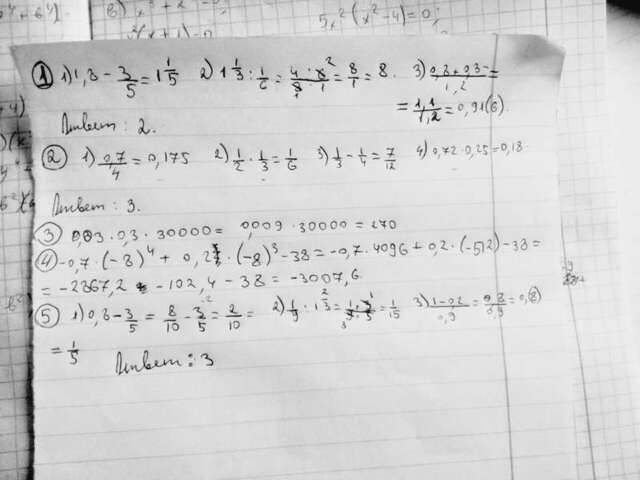 5x²(x²-4)=0;
① 1) 1,8 - 3/5 = 1 1/5 2) 1 1/3 : 1/6 = 4·6²/3·1 = 8/1 = 8. 3) 0,8+0,3/1,2 =
= 1,1/1,2 = 0,91(6).
Ответ: 2.
② 1) 0,7/4 = 0,175 2) 1/2 · 1/3 = 1/6 3) 1/3 - 1/4 = 7/12 4) 0,72·0,25=0,18.
Ответ: 3.
③ 0,03·0,3·30000= 0,009·30000=270
④ -0,7·(-8)⁴ + 0,2·(-8)³-38=-0,7·4096+0,2·(-512)-38=
= -2867,2 - 102,4 - 38 = -3007,6
⑤ 1) 0,8-3/5 = 8/10 - 3/5 = 2/10 = 3) 1-0,2/0,9 = 0,8/0,9 = 0,(8)
= 1/5 Ответ: 3